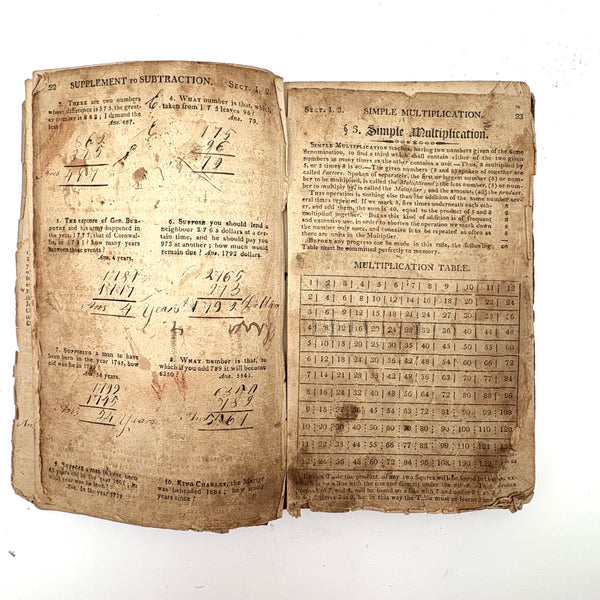 22 SUPPLEMENT TO SUBTRACTION. SECT. 1, 2.
3. THERE are two numbers
whose difference is 375, the great-
er number is 862; I demand the
less?
Ans. 487.
4. WHAT number is that, which
taken from 175 leaves 96?
Ans. 79.
862
375
487
175
96
79
5. THE capture of Gen. BUR-
GOYNE and his army happened in
the year 1777, that of Cornwal-
lis, in 1781; how many years
between these events?
Ans. 4 years.
6. SUPPOSE you should lend a
neighbour 2765 dollars at a cer-
tain time, and he should pay you
973 at another; how much would
remain due? Ans. 1792 dollars.
1781
1777
Ans 4 Years
2765
973
1792
7. SUPPOSE a man to have
been born in the year 1745, how
old was he in
8. WHAT number is that, to
which if you add 789 it will become
6350? Ans. 5561.
1745
Ans
6350
789
5561
9. SUPPOSE a man to have been
years old in the year
what year was he born?
Ans. In the year
10. KING CHARLES, the Martyr
was beheaded 1684; how many
years since?
SECT. 1. 3. SIMPLE MULTIPLICATION. 23
§ 3. Simple Multiplication.
SIMPLE MULTIPLICATION teaches, having two numbers given of the same
denomination, to find a third which shall contain either of the two given
numbers as many times as the other contains a unit.—Thus, 8 multiplied by
5, or 5 times 8 is 40.—The given numbers (8 and 5) spoken of together are
called Factors. Spoken of separately, the first or largest number (8) or num-
ber to be multiplied, is called the Multiplicand; the less number, (5) or num-
ber to multiply by, is called the Multiplier, and the amount, (40) the product.
This operation is nothing else than the addition of the same number sev-
eral times repeated. If we mark 8, five times underneath each oth-
er, and add them, the sum is 40, equal to the product of 5 and 8
multiplied together. But as this kind of addition is of frequent
and extensive use, in order to shorten the operation we mark down
the number only once, and conceive it to be repeated as often as
there are units in the Multiplier.
8
8
8
8
8
40
BEFORE any progress can be made in this rule, the following
Table must be committed perfectly to memory.
MULTIPLICATION TABLE.
1 2 3 4 5 6 7 8 9 10 11 12
2 4 6 8 10 12 14 16 18 20 22 24
3 6 9 12 15 18 21 24 27 30 33 36
4 8 12 16 20 24 28 32 36 40 44 48
5 10 15 20 25 30 35 40 45 50 55 60
6 12 18 24 30 36 42 48 54 60 66 72
7 14 21 28 35 42 49 56 63 70 77 84
8 16 24 32 40 48 56 64 72 80 88 96
9 18 27 36 45 54 63 72 81 90 99 108
10 20 30 40 50 60 70 80 90 100 110 120
11 22 33 44 55 66 77 88 99 110 121
12 24 36 48 60 72 84 96 108 120
Table the product of any two figures will be found in that
line with the one and directly under the other.